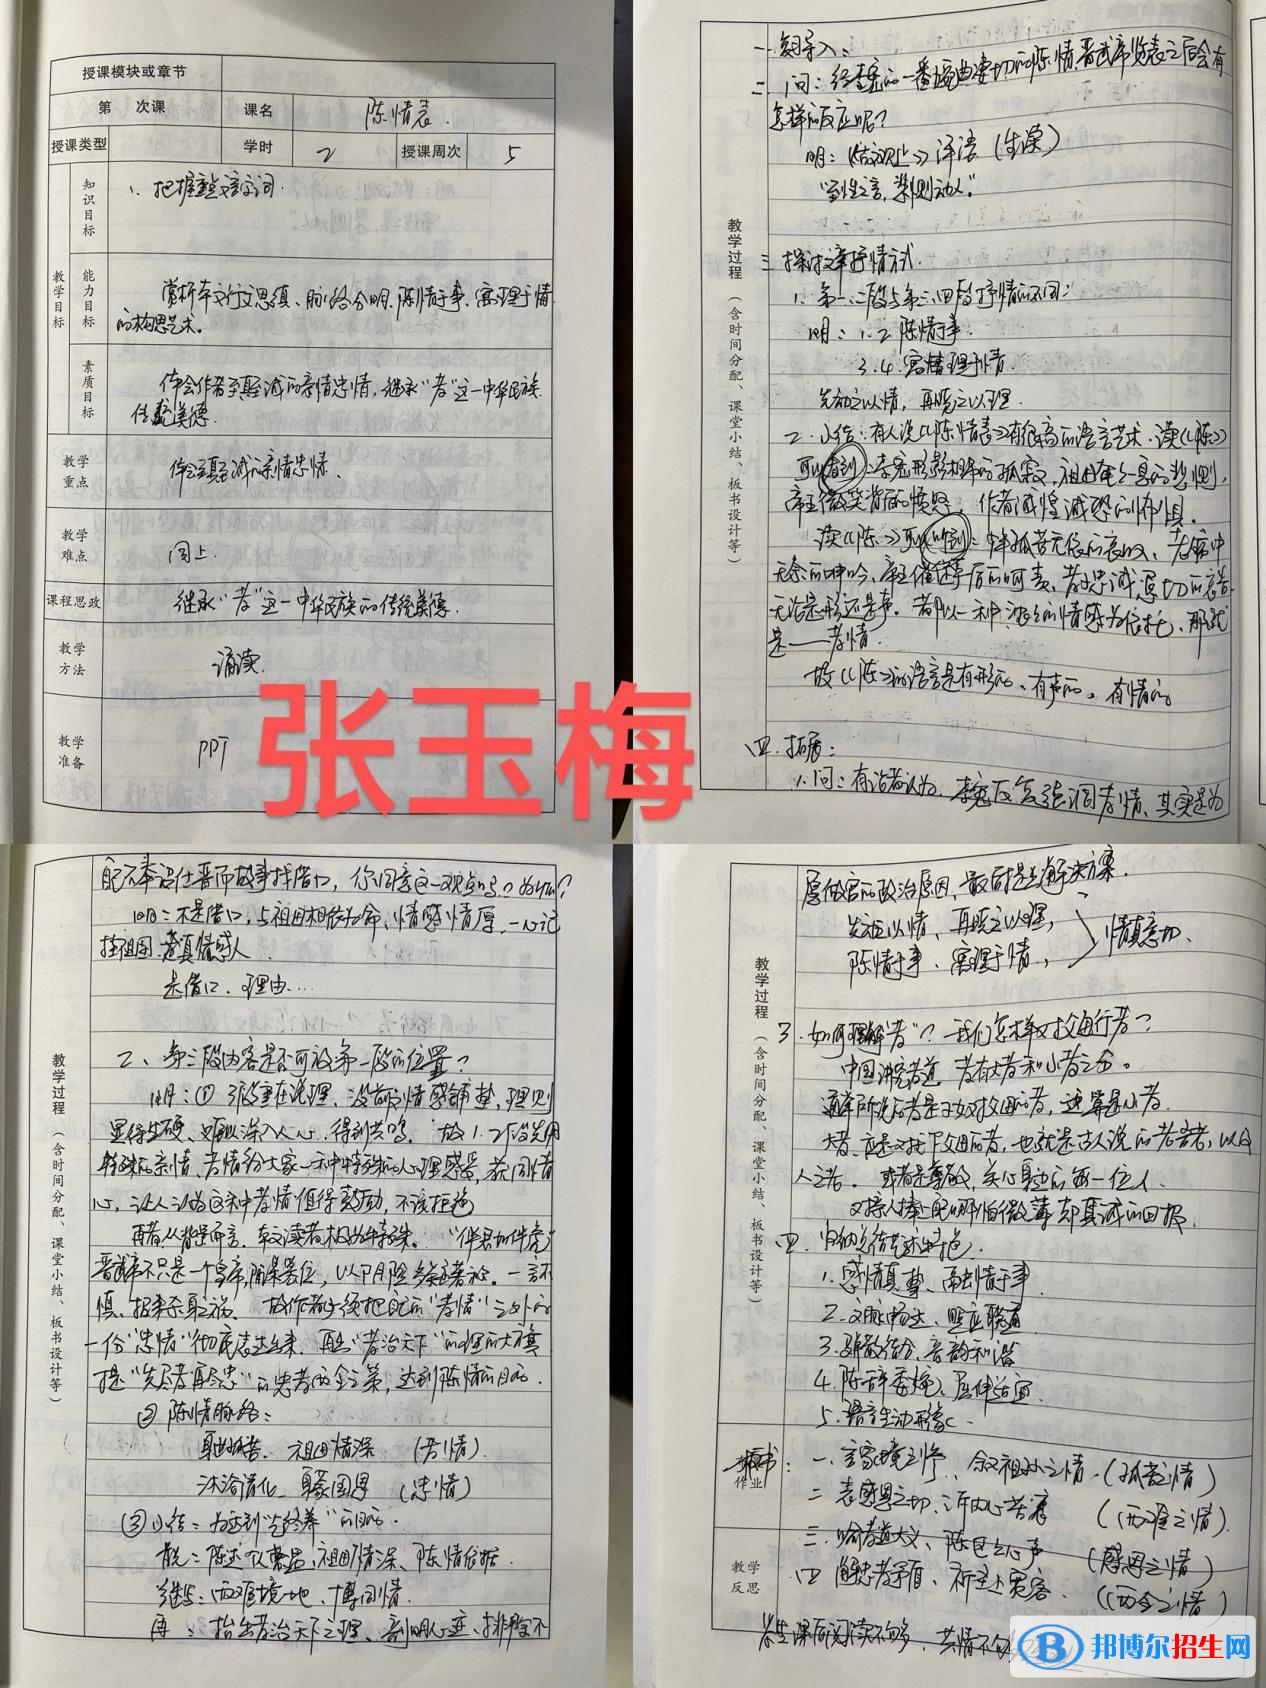 授课模块或章节
第 次课 课名 陈情表.
授课类型 学时 2 授课周次 5
教学目标
知识目标
1. 把握重点文言字词.
能力目标
赏析本文行文思缜、脉络分明、陈情于事、寓理于情
的构思艺术。
素质目标
体会作者至真至诚的亲情忠情,继承“孝”这一中华民族
传统美德.
教学重点
体会至真至诚的亲情忠情.
教学难点
同上.
课程思政
继承“孝”这一中华民族的传统美德.
教学方法
诵读.
教学准备
PPT
张玉梅
教学过程(含时间分配、课堂小结、板书设计等)
二 问:经李密的一番婉曲凄切的陈情,晋武帝览表之后会有
怎样的反应呢?
明: 译语 (生读)
“至性之言,
三 探讨文章抒情方式.
1. 第一、二段与第三、四段抒情的不同:
明: 1.2 陈情于事.
3.4 寓理于情.
先动之以情,再晓之以理.
2. 小结:有人说《陈情表》有很高的语言艺术.读《陈》
可以看到:李密形影相吊的孤寂,祖母奄奄一息的悲恻,
帝王微笑背后的愤怒,作者诚惶诚恐的怖惧.
读《陈》可以听到:少年孤苦无依的哀叹、老病中
无奈的呻吟、帝王催逼 后的呵责、孝子忠诚 切的哀告
无论是形还是声。都以一种 的情感为依托,那就
是——孝情.
故《陈》的语言是有形的、有声的、有情的。
四. 拓展:
1. 问:有论者认为,李密反复强调孝情,其实是为
配不奉诏仕晋而故事找借口,你同意这一观点吗?为什么?
明:不是借口,与祖母相依为命、情感情厚,一心记
挂祖母,着真情感人.
是借口.理由…
教学过程(含时间分配、课堂小结、板书设计等)
2、第三段内容是否可放第一段的位置?
明:① 三段重在说理,没前文情感铺垫,理则
显得生硬、难以深入人心,得到共鸣. 故1.2段先用
特殊的亲情、孝情给大家一种特殊的心理感受,获同情
心,让人认为这种孝情值得鼓励,不该拒绝
再者,从背景而言,本文读者极为特殊. “伴君如伴虎”
晋武帝不只是一个皇帝, 一言不
慎,招来杀身之祸. 故作者必须把自己的“孝情”之外的
一份“忠情”彻底表达出来,再点“孝治天下”的理的大旗
提“先尽孝再尽忠”的忠孝两全之策,达到陈情的目的.
② 陈情脉络:
身世孤苦、祖母情深 (苦情).
沐浴清化、身蒙国恩 (忠情)
③ 小结:为达到“终养”的目的.
首先:陈述 祖母情深、陈情依据.
继写:两难境地,博同情.
再:抬出孝治天下之理、剖明心迹、排除不
愿做官的政治原因,最后提出解决方案.
先动以情,再晓之以理,
陈情于事、寓理于情, 情真意切.
教学过程(含时间分配、课堂小结、板书设计等)
3. 如何理解“孝”?我们怎样对父母行孝?
中国讲究孝道,孝有大孝和小孝之分。
通常所说尽孝是子女对父母的孝,这算是小孝.
大孝,应是对天下父母的孝,也就是古人说的老吾老,以及
人之老. 或者是尊敬,关心身边每一位人.
对 人捧上哪怕微薄却真诚的回报
四. 归纳总结艺术特色.
1. 感情真挚、 情于事
2. 文脉畅达、照应 通
3. 骈散结合、音韵和谐
4. 陈辞委婉、屈伸适宜.
5. 语言生动形象.
作业
板书
: 一. 言家境之惨、叙祖孙之情.(孤苦之情)
二 表感恩之切、诉内心苦衷 (两难之情).
教学反思
三. 喻孝道大义、陈 心声 (感恩之情)
四 解忠孝矛盾、祈圣上宽容. (两全之情)
学生课后阅读不够多,共情不
邦博尔招生网